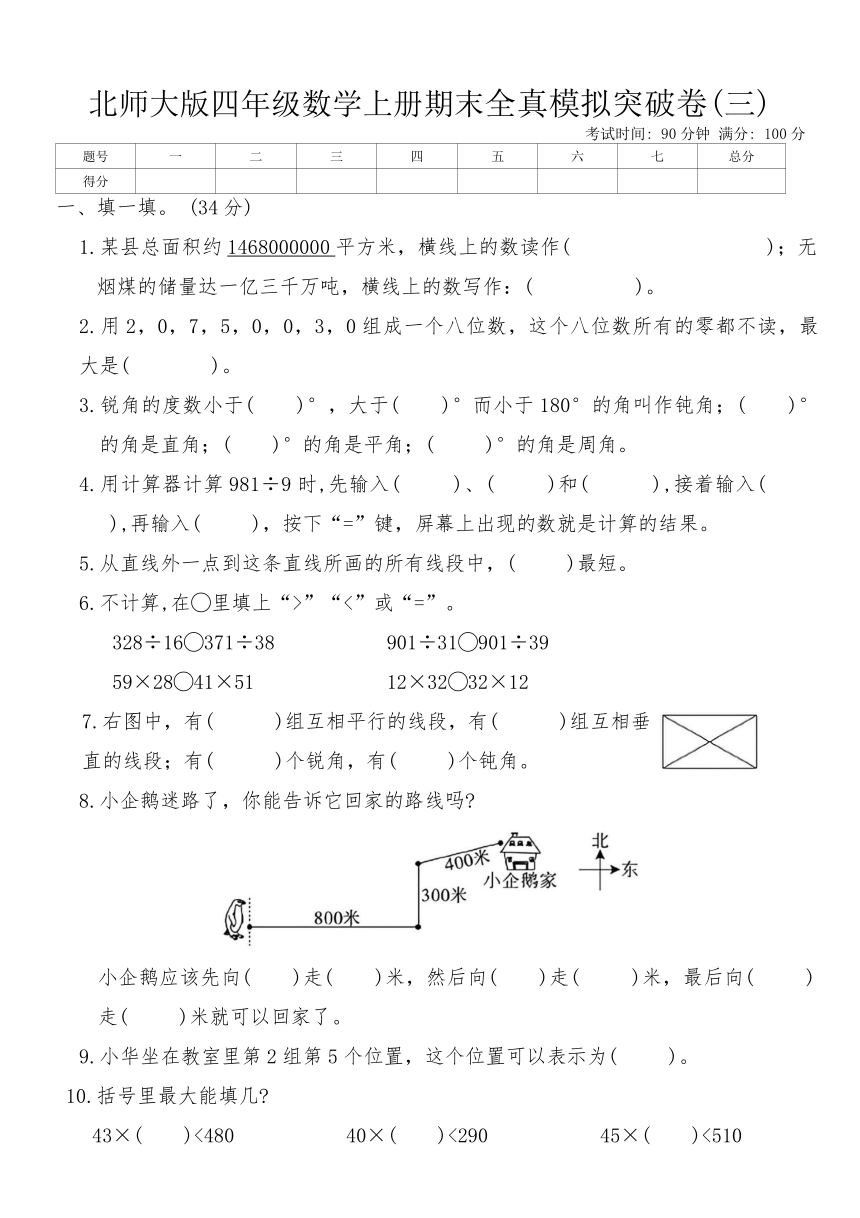 北师大版四年级数学上册期末全真模拟突破卷(三)
考试时间: 90分钟 满分: 100分
题号 一 二 三 四 五 六 七 总分
得分
一、填一填。 (34分)
1.某县总面积约1468000000平方米，横线上的数读作( );无
烟煤的储量达一亿三千万吨，横线上的数写作:( )。
2.用2,0,7,5,0,0,3,0组成一个八位数，这个八位数所有的零都不读，最
大是( )。
3.锐角的度数小于( )°,大于( )°而小于180°的角叫作钝角;( )°
的角是直角;( )°的角是平角;( )°的角是周角。
4.用计算器计算981÷9时,先输入( )、( )和( ),接着输入(
),再输入( ),按下“=”键，屏幕上出现的数就是计算的结果。
5.从直线外一点到这条直线所画的所有线段中，( )最短。
6.不计算,在○里填上“>”“<”或“=”。
328÷16○371÷38 901÷31○901÷39
59×28○41×51 12×32○32×12
7.右图中，有( )组互相平行的线段，有( )组互相垂
直的线段;有( )个锐角，有( )个钝角。
8.小企鹅迷路了，你能告诉它回家的路线吗?
北
400米
东
小企鹅家
300米
800米
小企鹅应该先向( )走( )米，然后向( )走( )米，最后向( )
走( )米就可以回家了。
9.小华坐在教室里第2组第5个位置，这个位置可以表示为( )。
10.括号里最大能填几?
43×( )<480 40×( )<290 45×( )<510